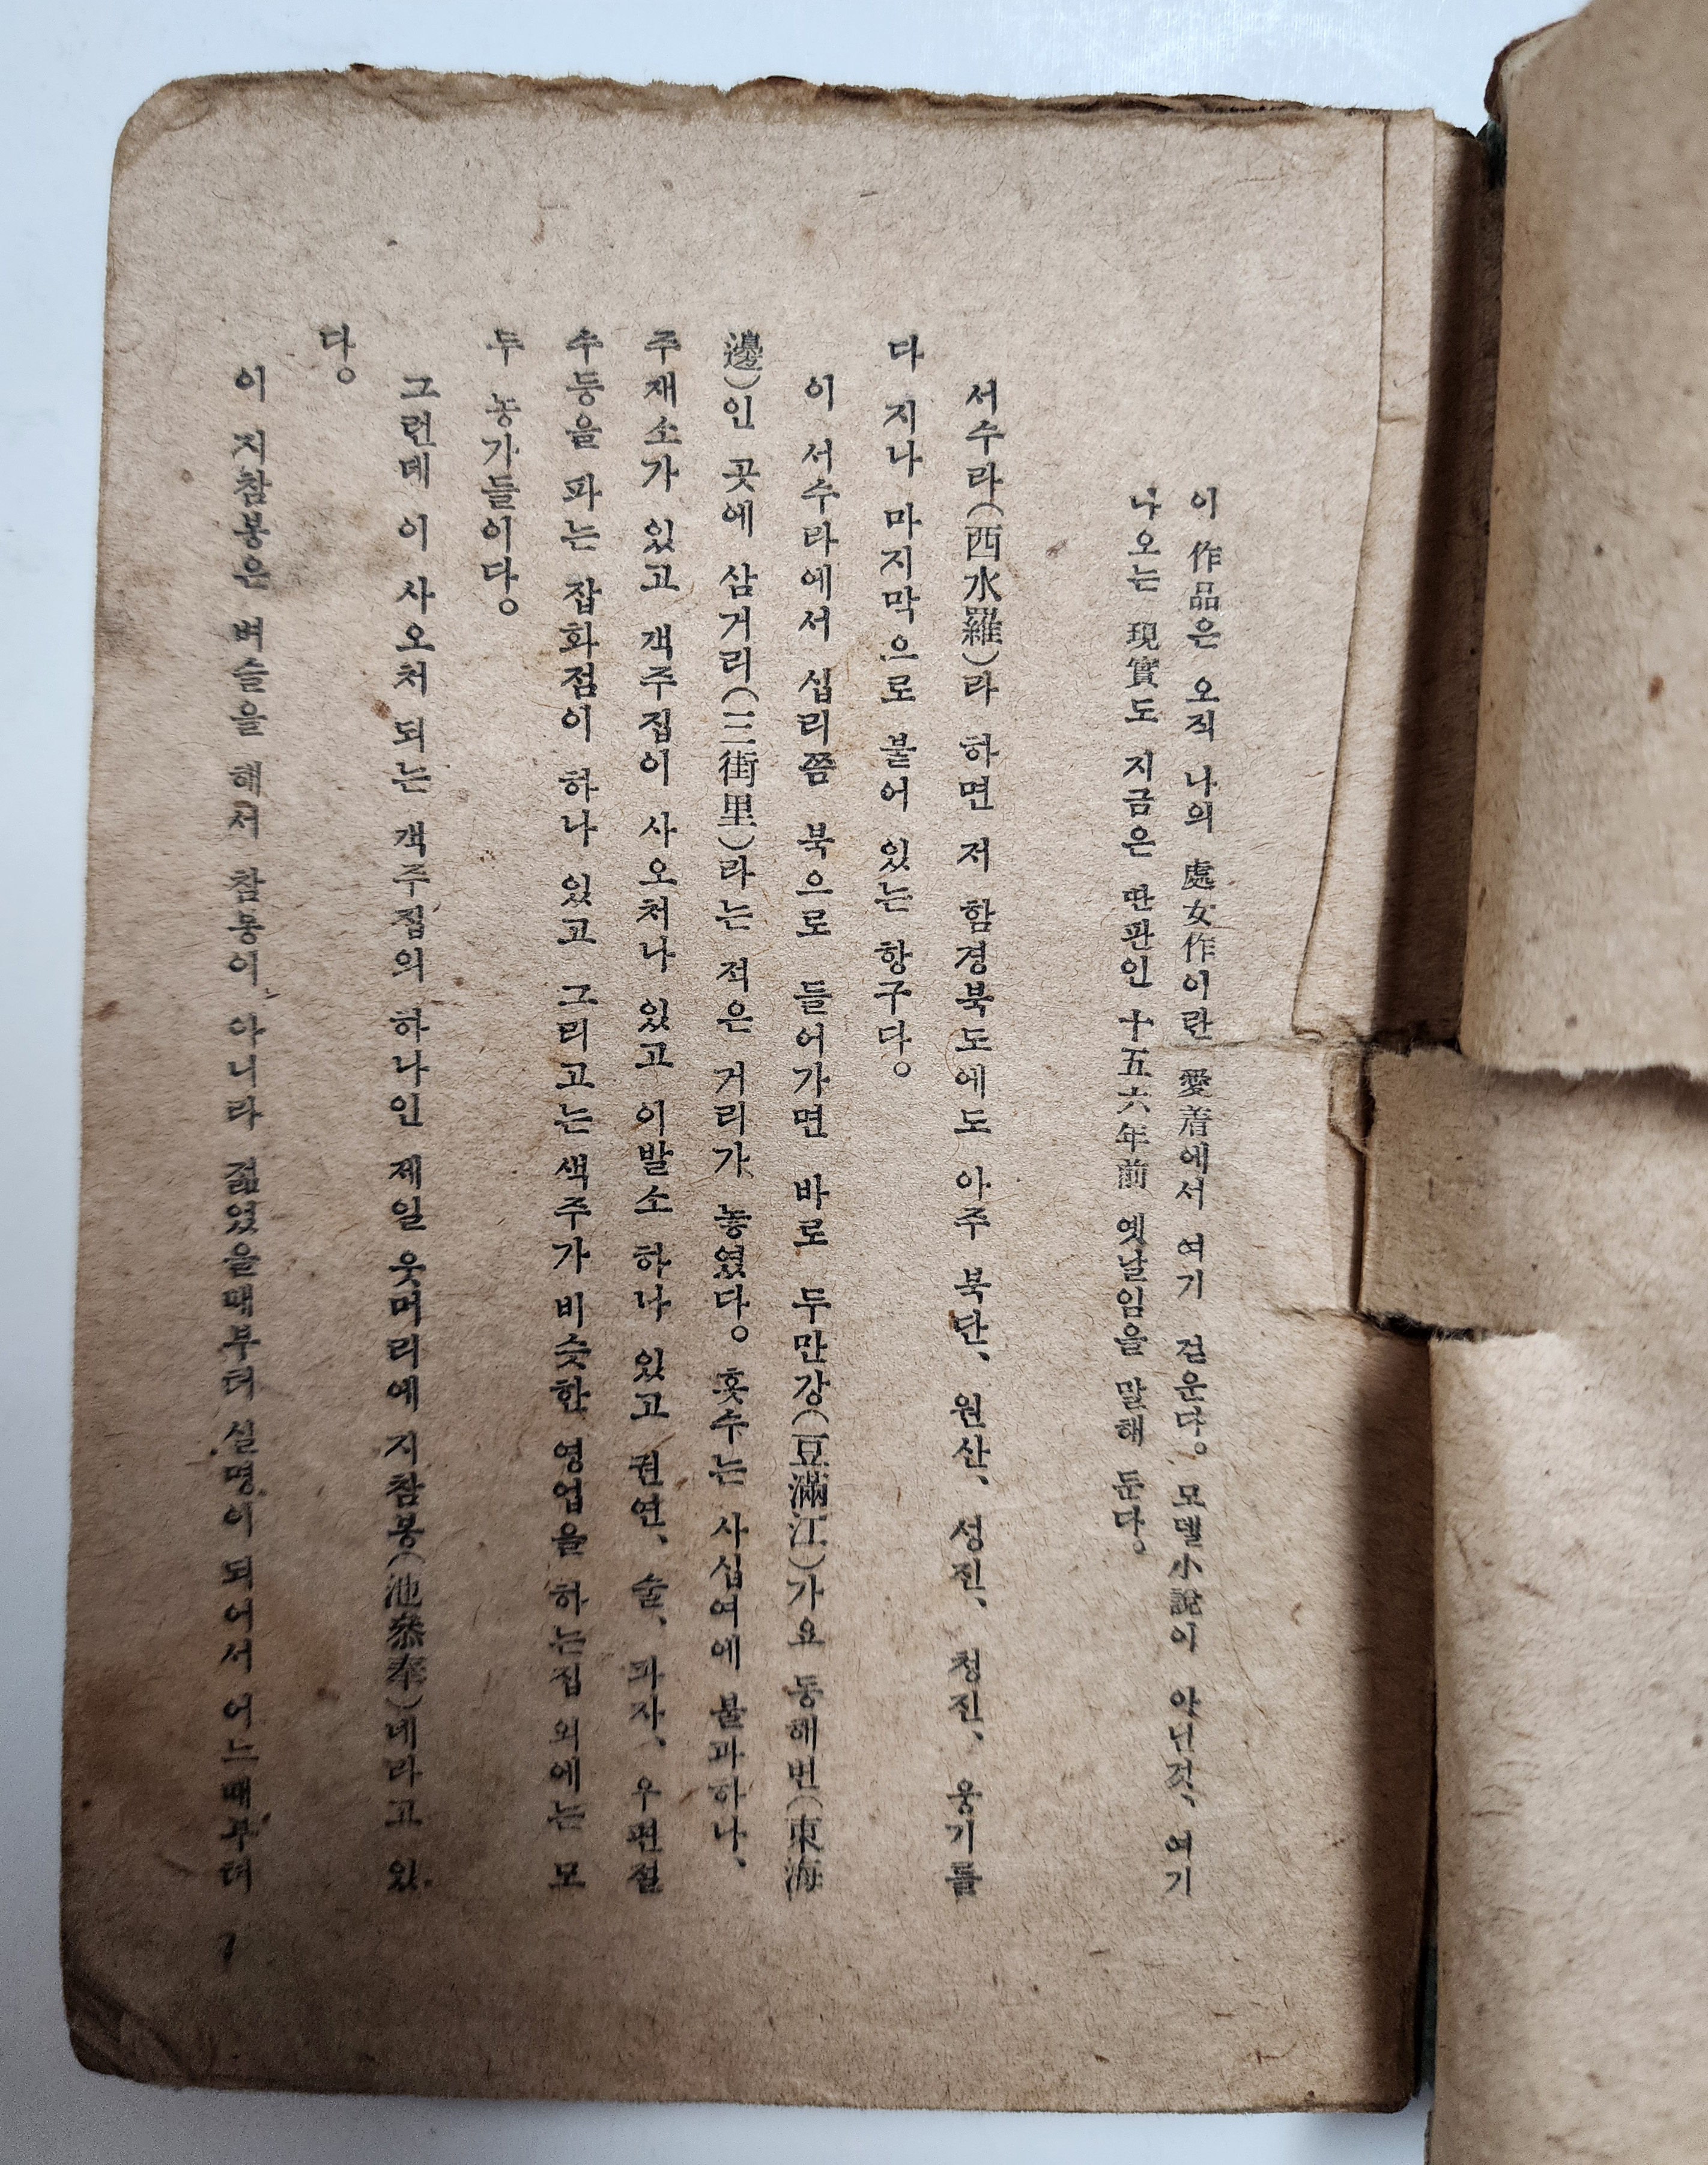 이 作品은 오직 나의 處女作이란 愛着에서 여기 걷운다。 모델小說이 아닌것、 여기
나오는 現實도 지금은 딴판인 十五六年前 옛날임을 말해 둔다。
서수라(西水羅)라 하면 저 함경북도에도 아주 북단、 원산、 성진、 청진、 웅기를
다 지나 마지막으로 붙어 있는 항구다。
이 서수라에서 십리쯤 북으로 들어가면 바로 두만강(豆滿江)가요 동해변(東海
邊)인 곳에 삼거리(三街里)라는 적은 거리가 놓였다。 홋수는 사십여에 불과하나、
주재소가 있고 객주집이 사오처나 있고 이발소 하나 있고 권연、 술、 과자、 우편절
수등을 파는 잡화점이 하나 있고 그리고는 색주가 비슷한 영업을 하는집 외에는 모
두 농가들이다。
그런데 이 사오처 되는 객주집의 하나인 제일 웃머리에 지참봉(池參奉)네라고 있
다。
이 지참봉은 벼슬을 해서 참봉이 아니라 젊었을때부터 실명이 되어서 어느때부터
7